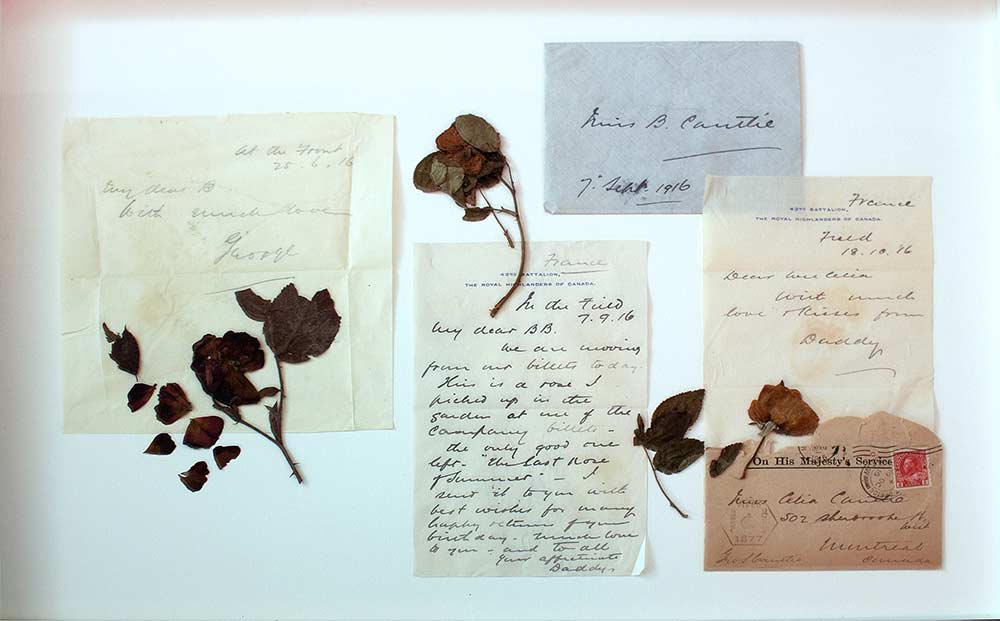 At the Front
25.6.16
My dear B
With much love
George
Miss B. Cantlie
7th Sept. 1916
France
42ND BATTALION,
THE ROYAL HIGHLANDERS OF CANADA.
In the Field
7.9.16
My dear BB.
We are moving
from our billets today.
This is a rose I
picked up in the
garden at one of the
Company billets -
the only good one
left - "The Last Rose
of Summer" - I
send it to you with
best wishes for many
happy returns of your
birthday. Much love
to you - and to all
Your affectionate
Daddy
France
42ND BATTALION,
THE ROYAL HIGHLANDERS OF CANADA.
Field
18.10.16
Dear wee Celia
With much
love & kisses from
Daddy
On His Majesty's Service
Miss Celia Cantlie
502 Sherbrooke St.
West
Montreal
Canada
Geo S Cantlie
1877